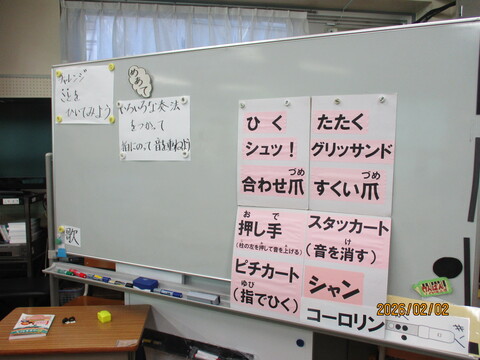 チャレンジ
箏を
ひいてみよう
めあて
いろいろな奏法
をつかって
拍にのって音を重ねよう
歌
ひく
シュッ!
合わせ爪
づめ
たたく
グリッサンド
すくい爪
づめ
押し手
お で
(柱の左を押して音を上げる)
ピチカート
(指でひく)
ゆび
スタッカート
(音を消す)
け
シャン
コーロリン
2026/02/02